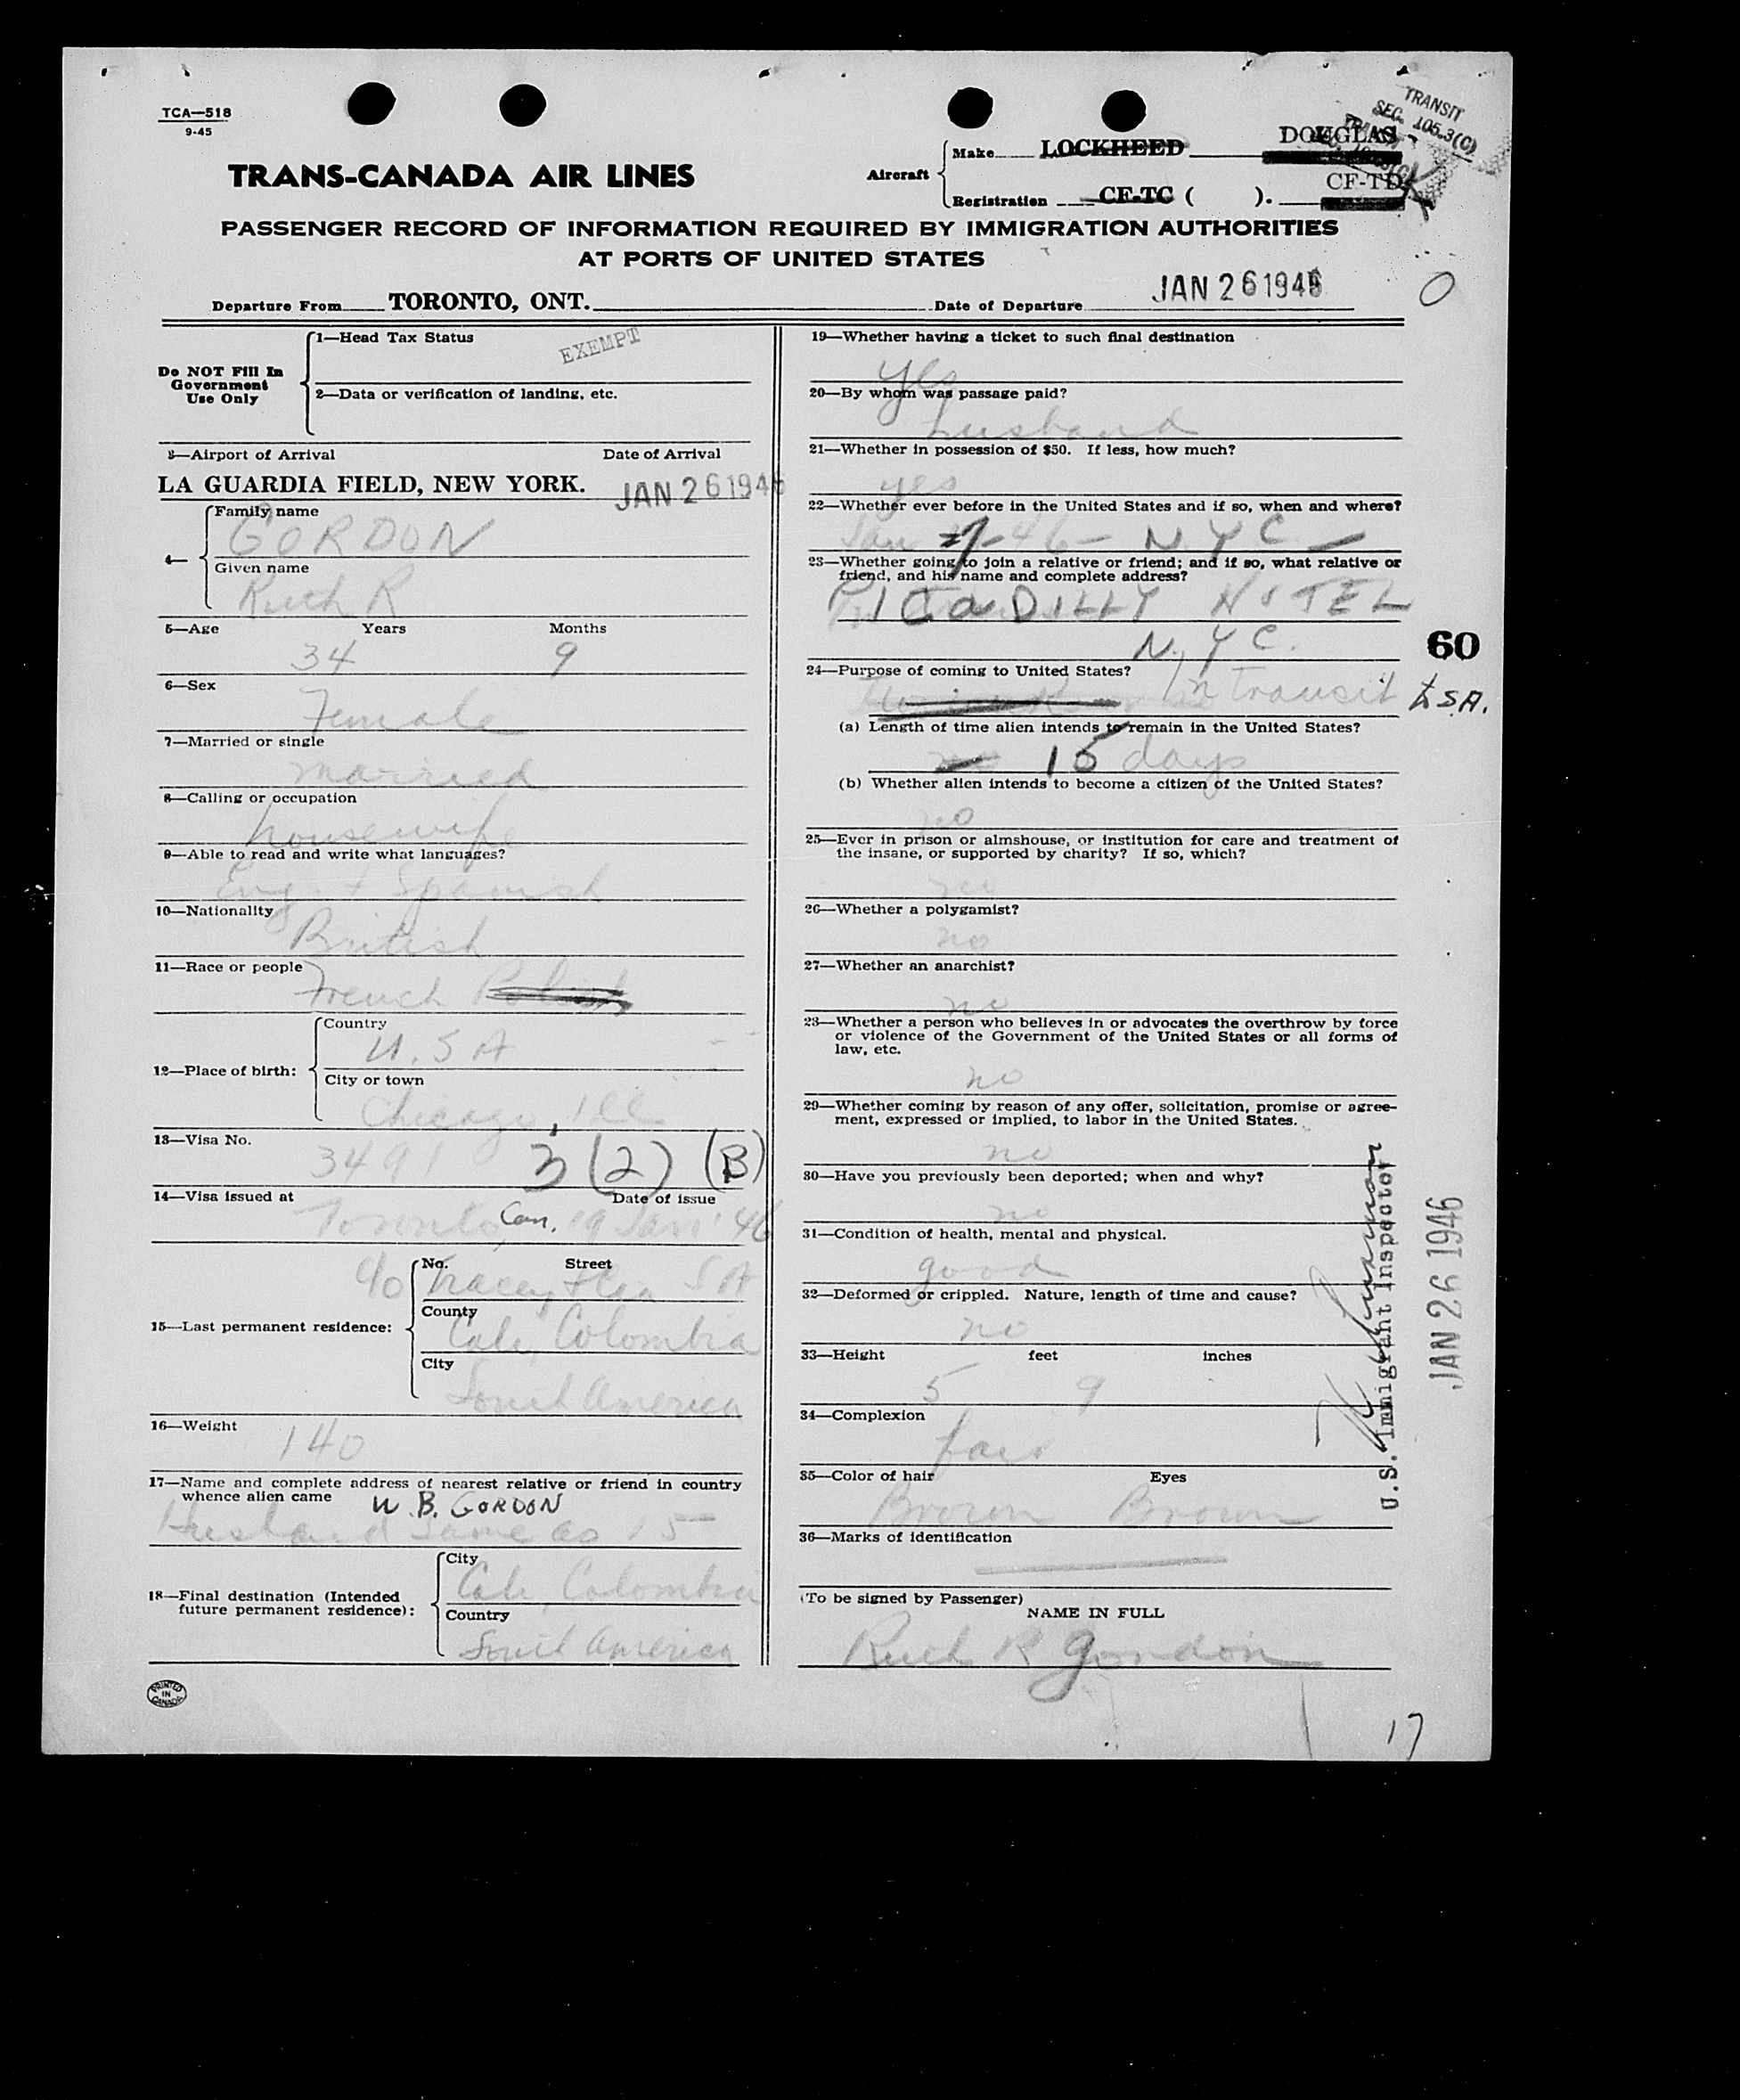 TCA—518
9-45
TRANSIT
SEC. 105.3(C)
TRANS-CANADA AIR LINES
Aircraft
Make LOCKHEED DOUGLAS
Registration CF-TC ( ). CF-TD
PASSENGER RECORD OF INFORMATION REQUIRED BY IMMIGRATION AUTHORITIES
AT PORTS OF UNITED STATES
Departure From TORONTO, ONT. Date of Departure JAN 26 1946
Do NOT Fill In
Government
Use Only
1—Head Tax Status EXEMPT
2—Data or verification of landing, etc.
3—Airport of Arrival Date of Arrival
LA GUARDIA FIELD, NEW YORK. JAN 26 1946
4—
Family name
GORDON
Given name
Ruth R
5—Age Years Months
34 9
6—Sex
Female
7—Married or single
married
8—Calling or occupation
housewife
9—Able to read and write what languages?
Eng. + Spanish
10—Nationality
British
11—Race or people
French Polish
12—Place of birth:
Country
U.S A
City or town
Chicago, Ill
13—Visa No.
3491 3 (2) (B)
14—Visa issued at Date of issue
Toronto Can. 19 Jan '46
15—Last permanent residence:
No. Street
c/o Tracey S A
County
Cali, Colombia
City
South America
16—Weight
140
17—Name and complete address of nearest relative or friend in country
whence alien came W. B. GORDON
Husband same as 15
18—Final destination (Intended
future permanent residence):
City
Cali, Colombia
Country
South America
PRINTED
IN
CANADA
19—Whether having a ticket to such final destination
yes
20—By whom was passage paid?
husband
21—Whether in possession of $50. If less, how much?
yes
22—Whether ever before in the United States and if so, when and where?
Jan 7-46- N Y C —
23—Whether going to join a relative or friend; and if so, what relative or
friend, and his name and complete address?
PICaDILLY HOTEL
N.Y C.
60
24—Purpose of coming to United States?
In transit
S.A.
(a) Length of time alien intends to remain in the United States?
15 days
(b) Whether alien intends to become a citizen of the United States?
no
25—Ever in prison or almshouse, or institution for care and treatment of
the insane, or supported by charity? If so, which?
no
26—Whether a polygamist?
no
27—Whether an anarchist?
no
28—Whether a person who believes in or advocates the overthrow by force
or violence of the Government of the United States or all forms of
law, etc.
no
29—Whether coming by reason of any offer, solicitation, promise or agree-
ment, expressed or implied, to labor in the United States.
no
30—Have you previously been deported; when and why?
no
31—Condition of health, mental and physical.
good
32—Deformed or crippled. Nature, length of time and cause?
no
33—Height feet inches
5 9
34—Complexion
fair
35—Color of hair Eyes
Brown Brown
36—Marks of identification
(To be signed by Passenger)
NAME IN FULL
Ruth R Gordon
U.S. Immigrant Inspector
JAN 26 1946
17